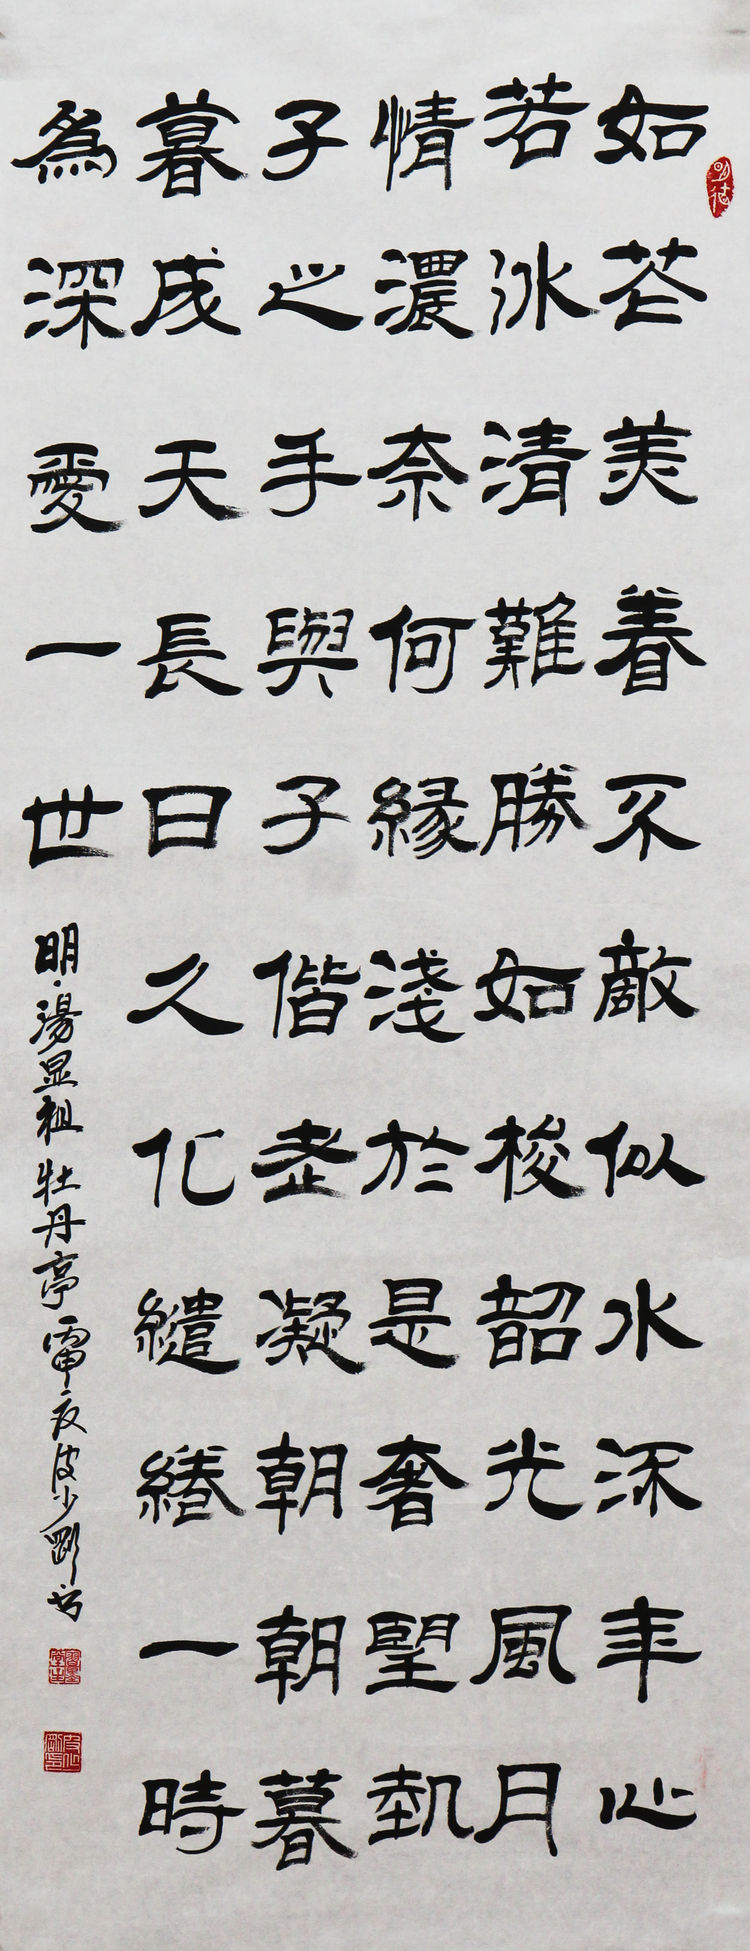 如花美眷不敵似水流年心
若冰清難勝如梭韶光風月
情濃奈何緣淺於是奢望執
子之手與子偕老凝朝朝暮
暮成天長日久化繾綣一時
為深愛一世
明·湯显祖牡丹亭丙申夏皮少剛书